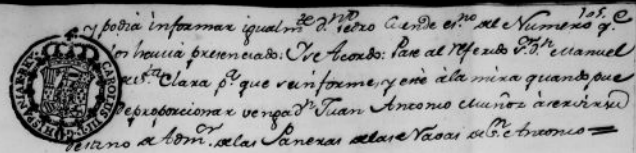 105.
y podia informar igualmte. dn. Pedro Conde esno. del Numero qe.
los havia presenciado: Y se Acordo: Pase al referido Sr. Dn. Manuel
de Sta. Clara pa. que se informe, y esté à la mira quando pue
de proporcionar venga dn. Juan Antonio Muñoz à servir su
destino de Admor. de las Paneras de las Navas de Sn. Antonio =
CAROLUS III D G HISPANIAR REX